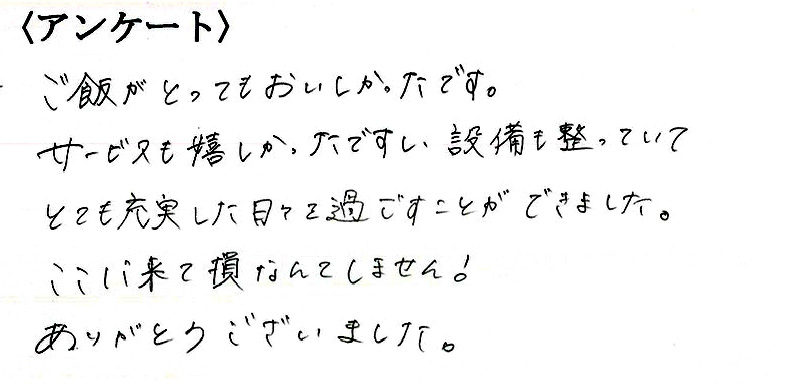 〈アンケート〉
ご飯がとってもおいしかったです。
サービスも嬉しかったですし、設備も整っていて
とても充実した日々を過ごすことができました。
ここに来て損なんてしません!
ありがとうございました。